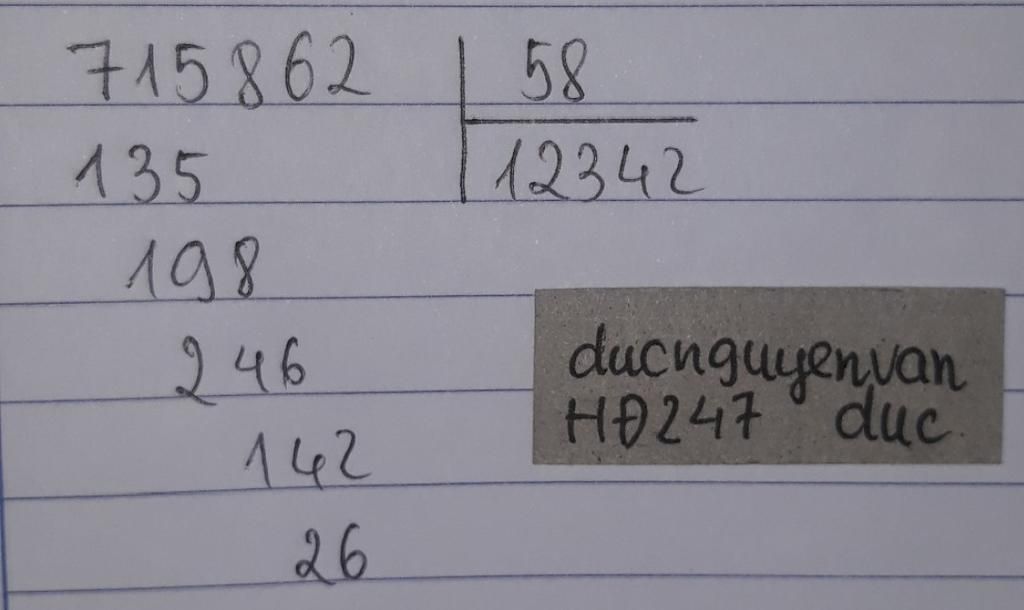 715862 58
135 12342
198
246
142
26
ducnguyenvan
HĐ247 duc